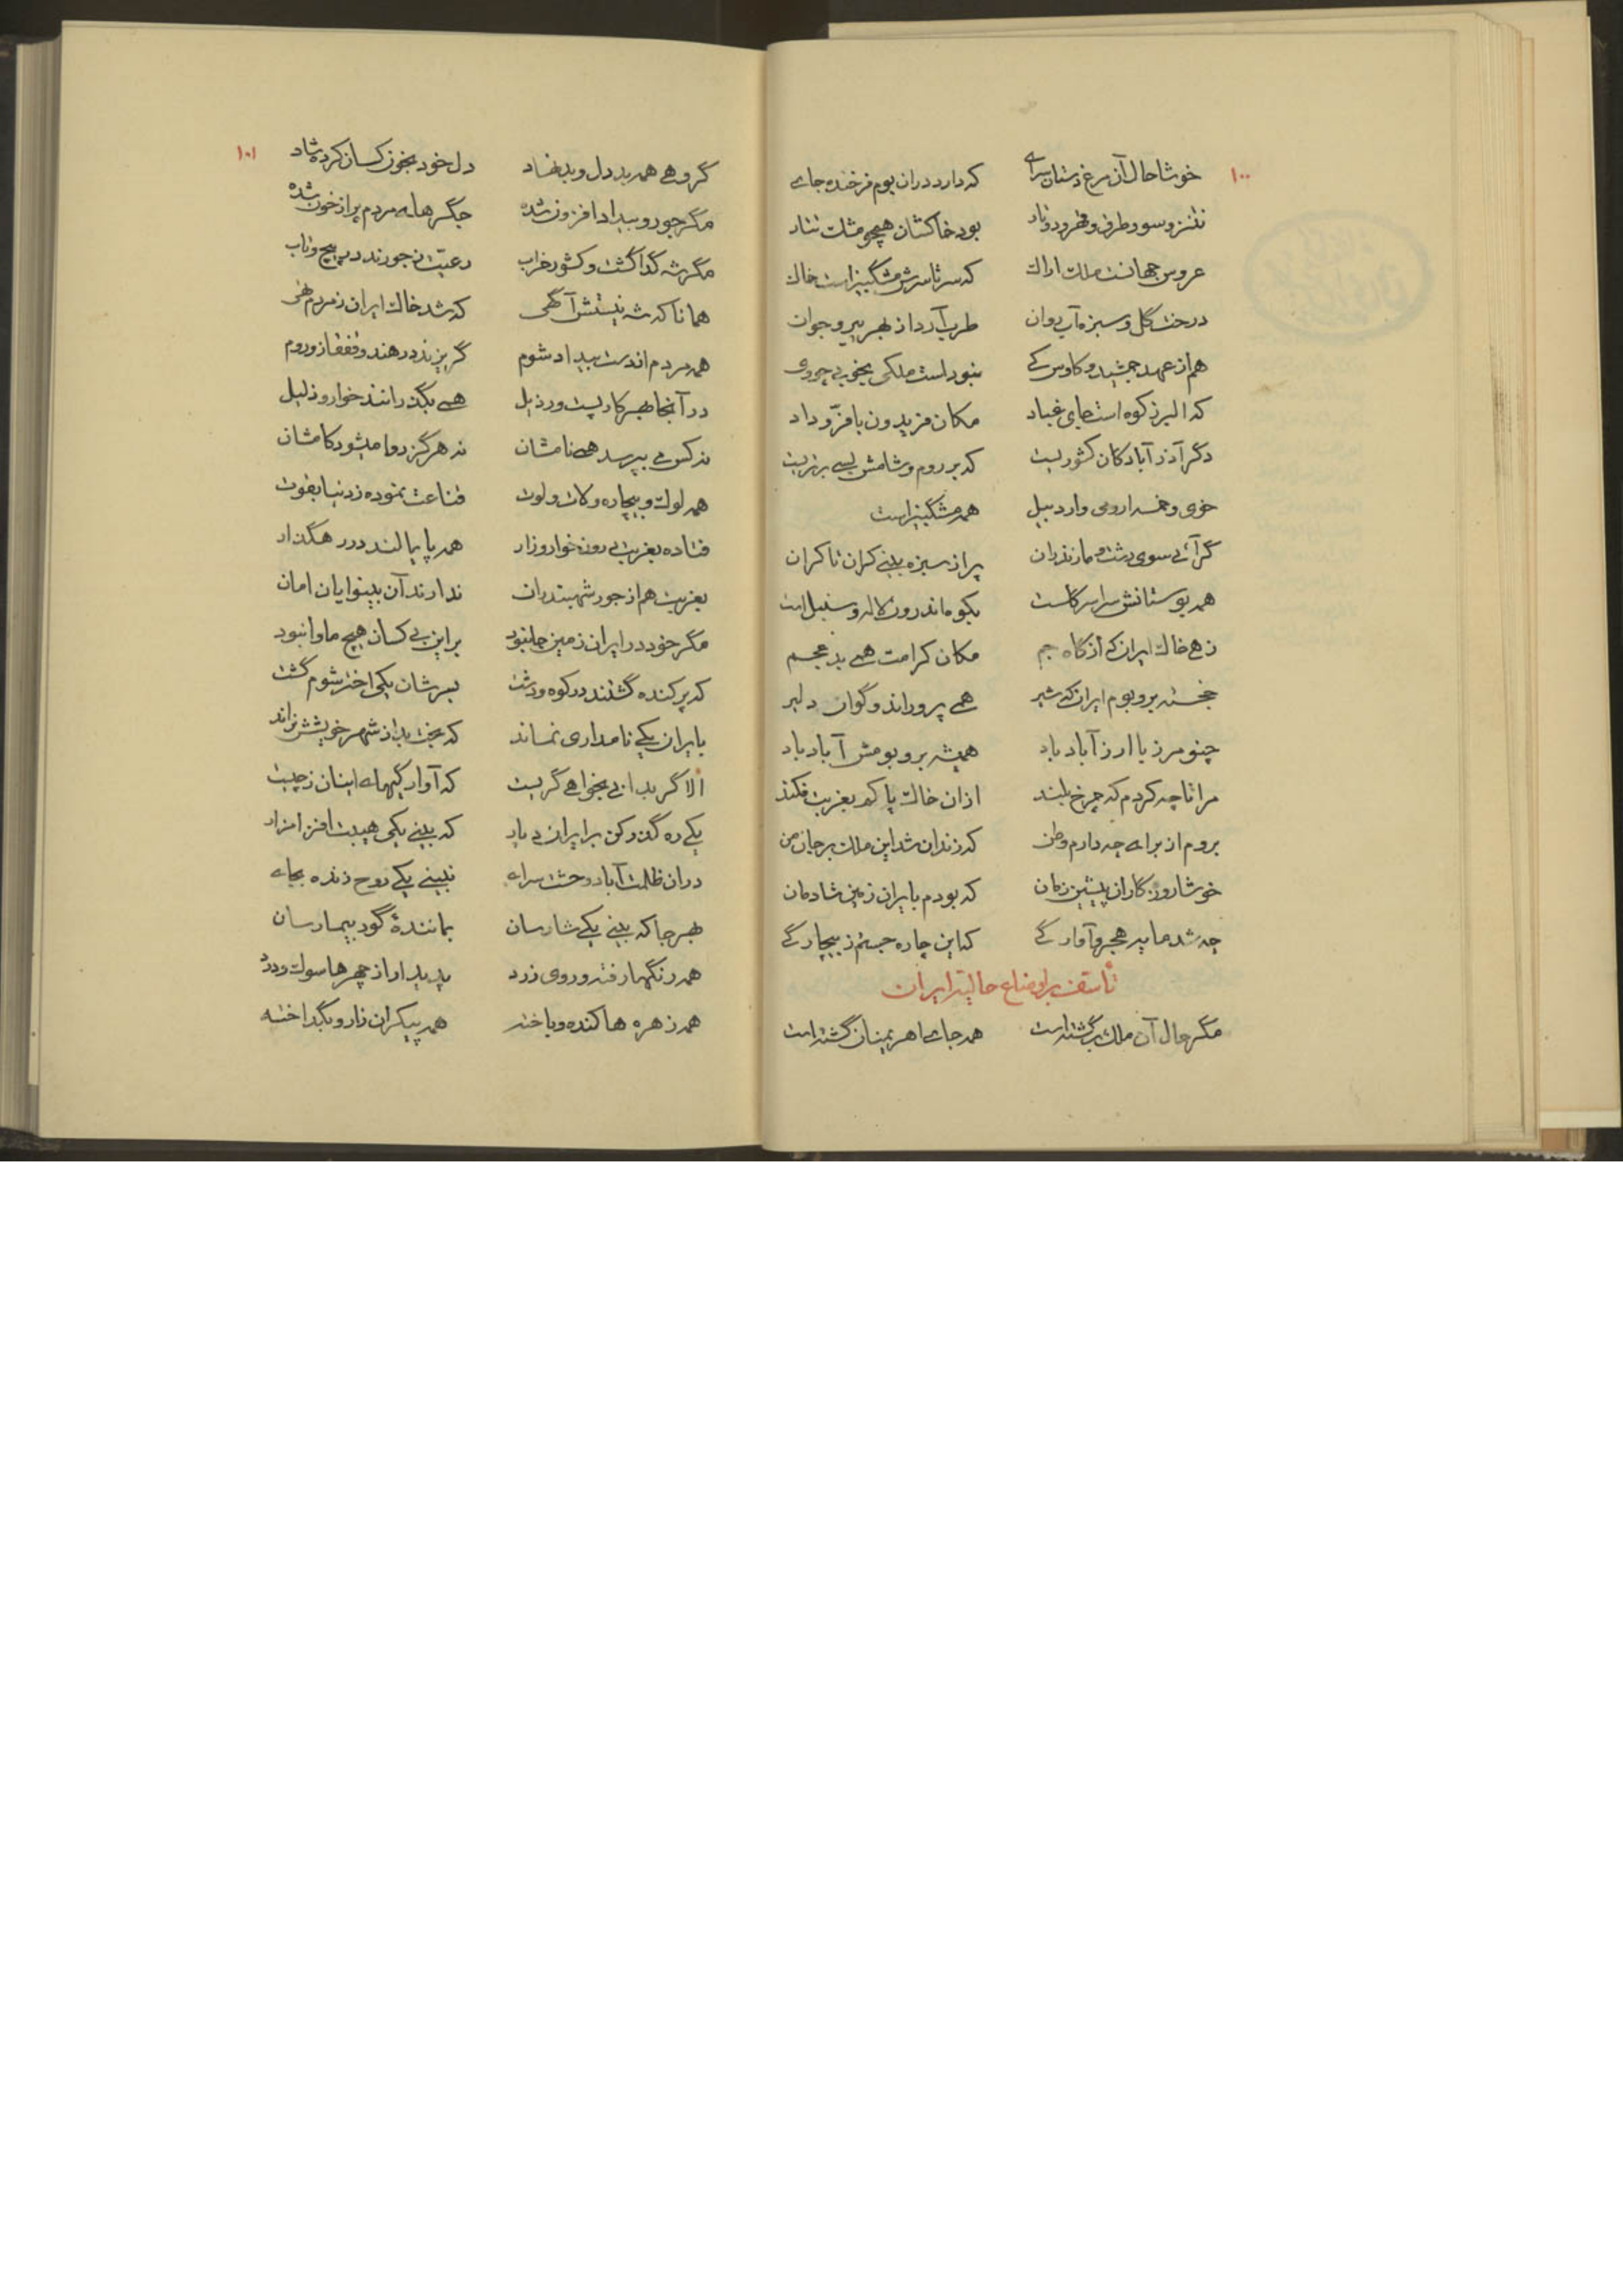 ۱۰۰
خوشا حال آن مرغ دستان سرای که دارد در آن بوم فرخنده جای
نطنز و سو و طرق و قهرود و ناد بود خاکشان همچو مشک تتار
عروس جهانست ملک اراک که سر تا سرش مشگبیز است خاک
درخت گل و سبزه و آب روان طرب آرد از بهر پیر و جوان
هم از عهد جمشید و کاوس کی نبود است ملکی بخوبی چو ری
که البرز کوه است جای غباد مکان فریدون با فرّ و داد
دگر آذر آبادکان کشوریست که بر روم و شامش بسی برتریست
خوی و خمسه ارومی و اردبیل همه مشگبیز است
گر آئی سوی رشت و مازندران پر از سبزه بینی کران تا کران
همه بوستانش سراسر گلست بکوه اندرون لاله و سنبل است
زهی خاک ایران که از گاه جم مکان کرامت همی بد عجم
خجسته بر و بوم ایران که شیر همی پروراند و گوان دلیر
چنو مرز با ارز آباد باد همیشه بر و بومش آباد باد
مرا تا چه کردم که چرخ بلند از آن خاک پاکم بغربت فکند
بروم از برای چه دارم وطن که زندان شد این ملک بر جان من
خوشا روزگاران پیشین زمان که بودم بایران زمین شادمان
چه شد مایه هجر و آوارگی که این چاره جستم ز بیچارگی
تأسف بر اوضاع حالیه ایران
مگر حال آن ملک برگشته است همه جای اهریمنان گشته است
۱۰۱
گروهی همه بد دل و بد نهاد دل خود بخون کسان کرده شاد
مگر جور و بیداد افزون شده جگرهای مردم پر از خون شده
مگر شه گدا گشت و کشور خراب رعیت ز جورند در پیچ و تاب
همانا که شه نیستش آگهی که شد خاک ایران ز مردم تهی
همه مردم از دست بیداد شوم گریزند در هند و قفقاز و روم
در آنجا بهر کار پست و رذیل همی بگذرانند خوار و ذلیل
نه کس می بپرسد همی نامشان نه هرگز روا میشود کامشان
همه لوک و بیچاره و لات و لوت قناعت نموده ز دنیا بقوت
فتاده بغربت بر ون خوار و زار همه پایمالند در رهگذار
بغربت هم از جور شهبندران ندارند آن بینوایان امان
مگر خود در ایران زمین جا نبود بر این بی کسان هیچ ماوا نبود
که پرکنده گشتند در کوه و دشت بسرشان یکی اختر شوم گشت
بایران یکی نامداری نماند که بخت بد از شهر خویشش نراند
الا گر بدانی بخواهی گریست که آوارگیهای اینان ز چیست
یکی ره گذر کن بر ایران دیار که بینی یکی هیبت افزا مزار
در آن ظلمت آباد وحشت سرای نبینی یکی روح زنده بجای
بهر جا که بینی یکی شارسان بمانندهٔ گور بیمارسان
همه رنگها رفته و روی زرد پدیدار از چهرها سوک و درد
همه زهره ها کنده و باخته همه پیکران زار و بگداخته